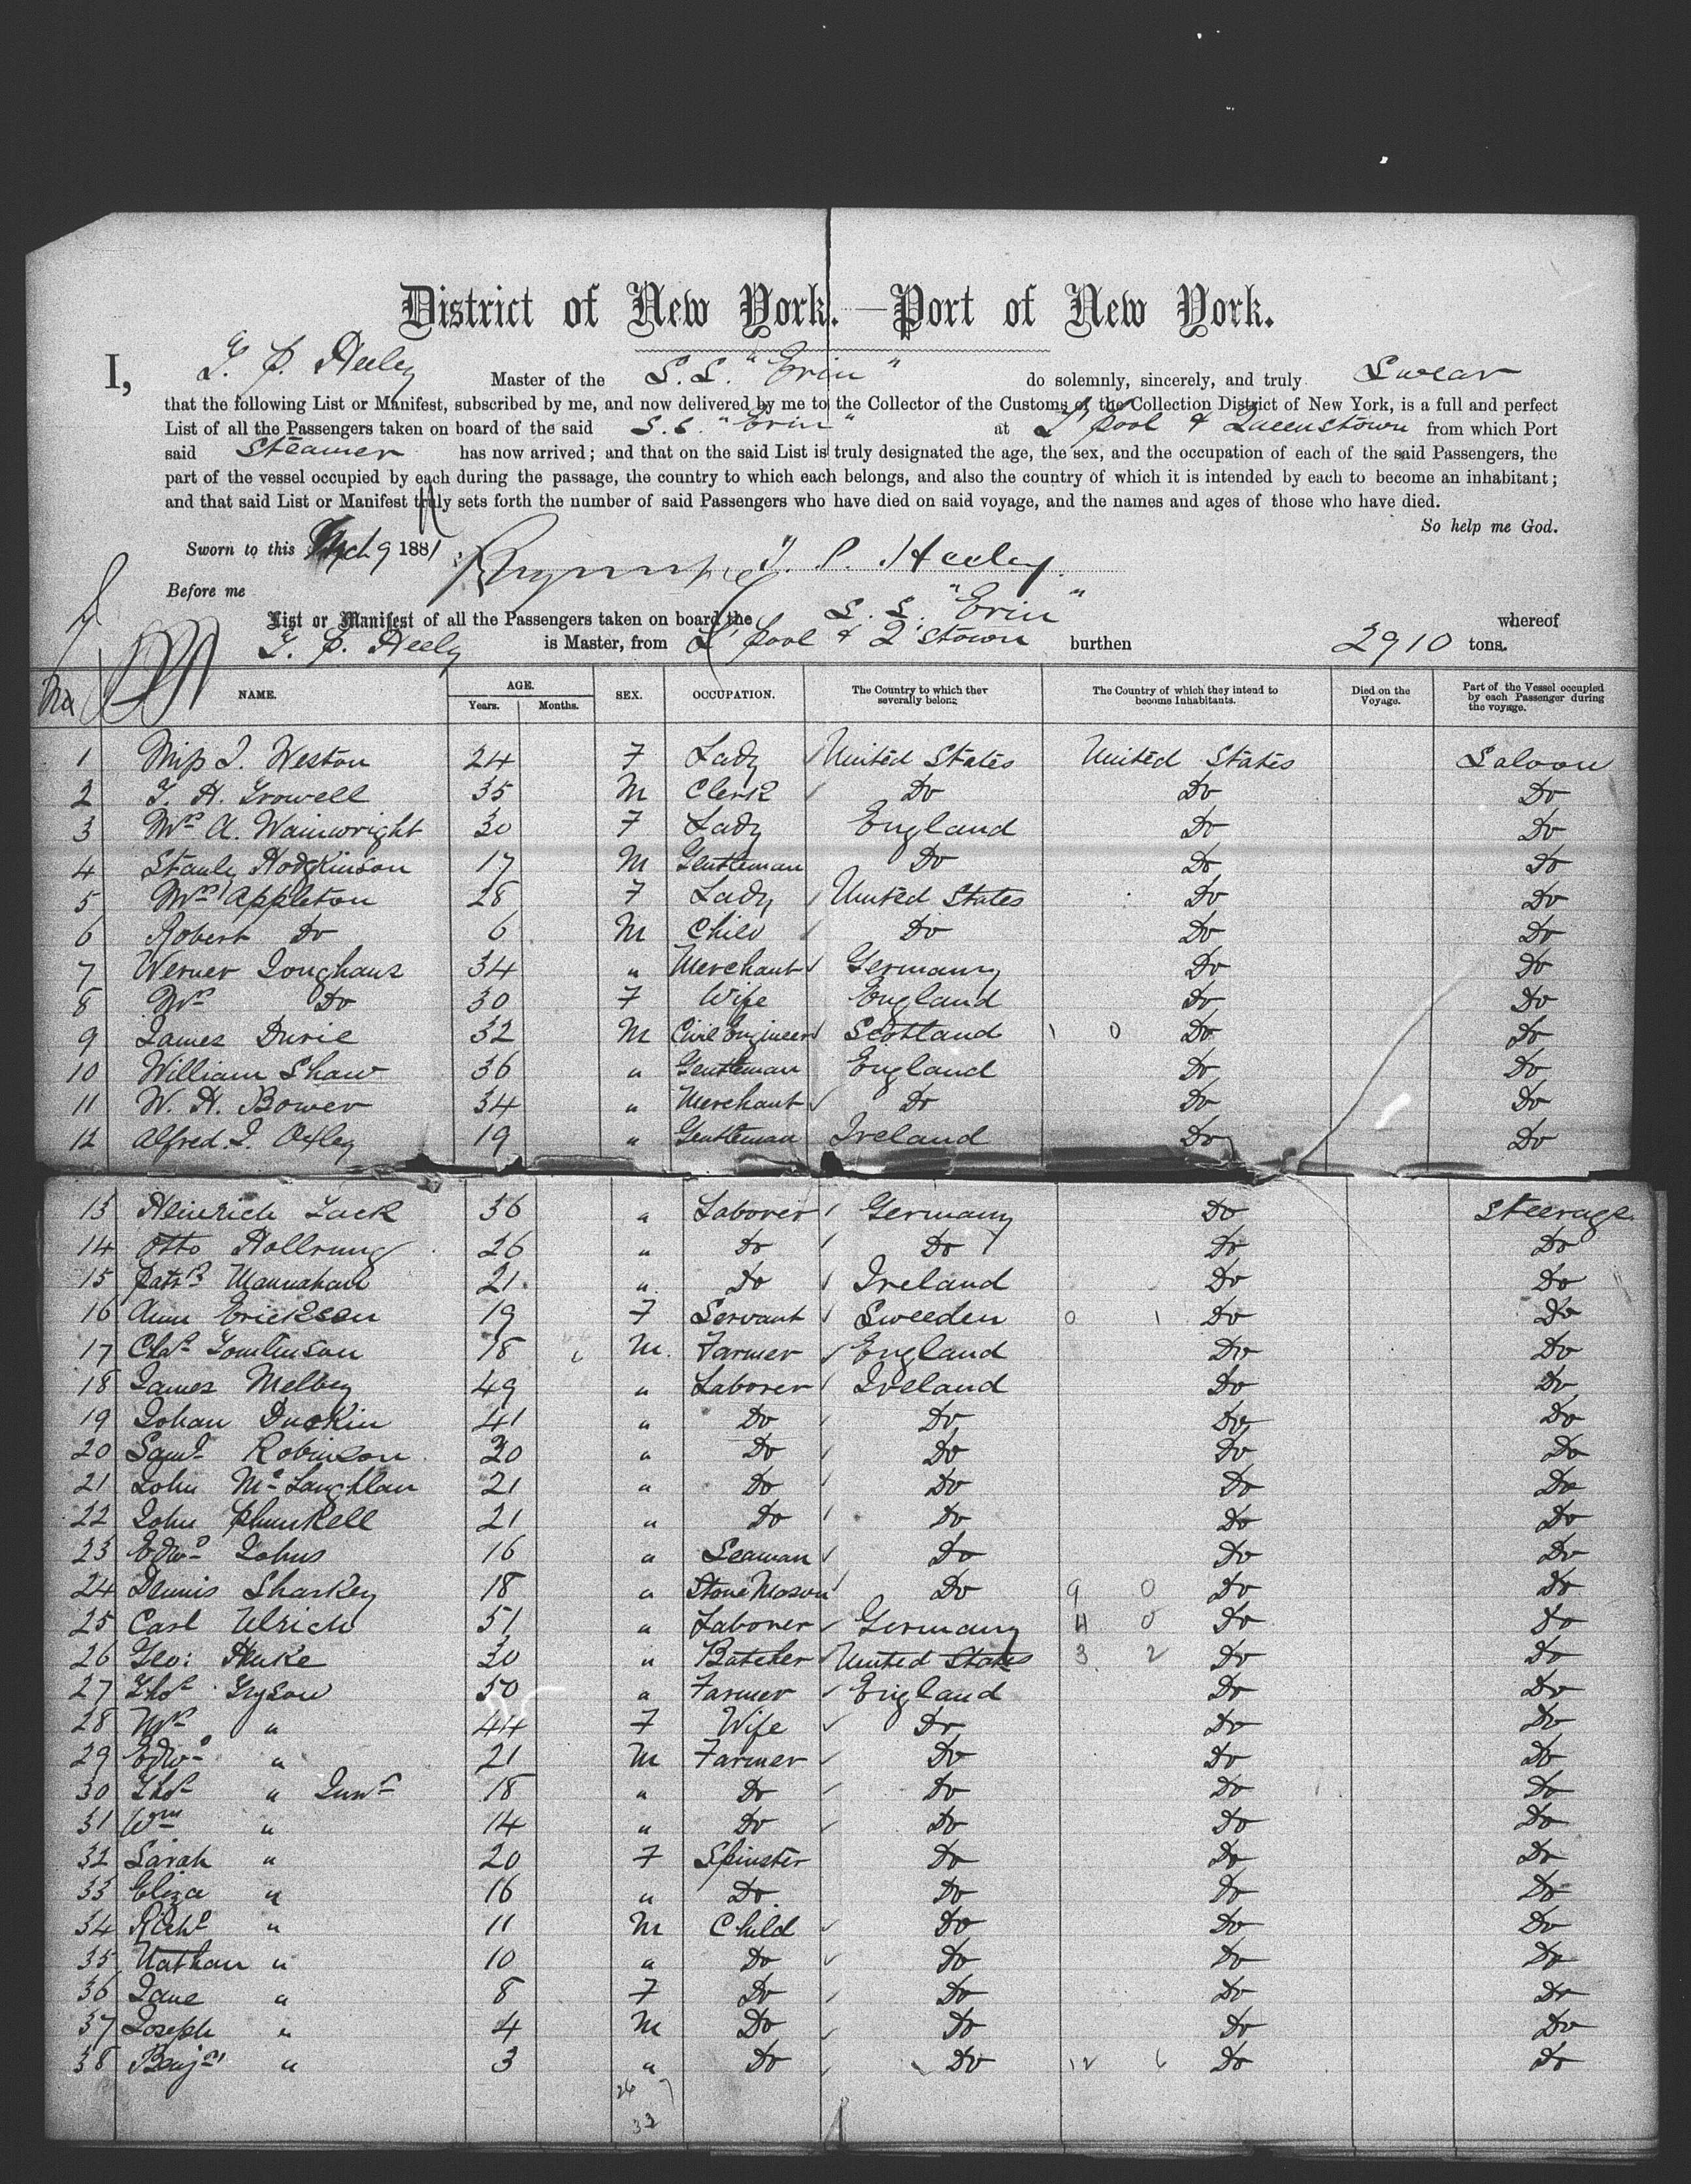 District of New York.—Port of New York.
I, T. P. Heeley Master of the S.S. "Erin" do solemnly, sincerely, and truly Swear
that the following List or Manifest, subscribed by me, and now delivered by me to the Collector of the Customs of the Collection District of New York, is a full and perfect
List of all the Passengers taken on board of the said S.S. "Erin" at L'pool & Queenstown from which Port
said Steamer has now arrived; and that on the said List is truly designated the age, the sex, and the occupation of each of the said Passengers, the
part of the vessel occupied by each during the passage, the country to which each belongs, and also the country of which it is intended by each to become an inhabitant;
and that said List or Manifest truly sets forth the number of said Passengers who have died on said voyage, and the names and ages of those who have died.
So help me God.
Sworn to this Mch 9 1881 T. P. Heeley
Before me
List or Manifest of all the Passengers taken on board the S.S. "Erin" whereof
T. P. Heely is Master, from L'pool & Q'stown burthen 2910 tons.
No NAME. AGE. Years. Months. SEX. OCCUPATION. The Country to which they severally belong. The Country of which they intend to become Inhabitants. Died on the Voyage. Part of the Vessel occupied by each Passenger during the voyage.
1 Miss J. Weston 24 F Lady United States United States Saloon
2 T. H. Trowell 35 M Clerk Do Do Do
3 Mrs A. Wainwright 30 F Lady England Do Do
4 Stanly Hodgkinson 17 M Gentleman Do Do Do
5 Mrs Appleton 28 F Lady United States Do Do
6 Robert Do 6 M Child Do Do Do
7 Werner Longhaus 34 " Merchant Germany Do Do
8 Mrs Do 30 F Wife England Do Do
9 James Durie 32 M Civil Engineer Scotland 1 0 Do Do
10 William Shaw 36 " Gentleman England Do Do
11 W. H. Bower 34 " Merchant Do Do Do
12 Alfred J. Oxley 19 " Gentleman Ireland Do Do
13 Heinrich Lack 36 " Laborer Germany Do Steerage
14 Otto Hollrung 26 " Do Do Do Do
15 Patrk Mannahan 21 " Do Ireland Do Do
16 Ann Erickson 19 F Servant Sweeden 0 1 Do Do
17 Chas Tomlinson 18 M. Farmer England Do Do
18 James Melbey 49 " Laborer Ireland Do Do
19 Johan Duckin 41 " Do Do Do Do
20 Saml Robinson 30 " Do Do Do Do
21 John Mc Laughlan 21 " Do Do Do Do
22 John Plunkell 21 " Do Do Do Do
23 Edwd Johns 16 " Seaman Do Do Do
24 Dennis Sharkey 18 " Stone Mason Do 9 0 Do Do
25 Carl Ulrich 51 " Laborer Germany 4 0 Do Do
26 Geo: Huke 30 " Butcher United States 3 2 Do Do
27 Thos Tryson 50 " Farmer England Do Do
28 Mrs " 44 F Wife Do Do Do
29 Edwd " 21 M Farmer Do Do Do
30 Thos " Junr 18 " Do Do Do Do
31 Wm " 14 " Do Do Do Do
32 Sarah " 20 F Spinster Do Do Do
33 Eliza " 16 " Do Do Do Do
34 Richd " 11 M Child Do Do Do
35 Nathan " 10 " Do Do Do Do
36 Jane " 8 F Do Do Do Do
37 Joseph " 4 M Do Do Do Do
38 Benjn " 3 " Do Do 12 6 Do Do
26 7
33